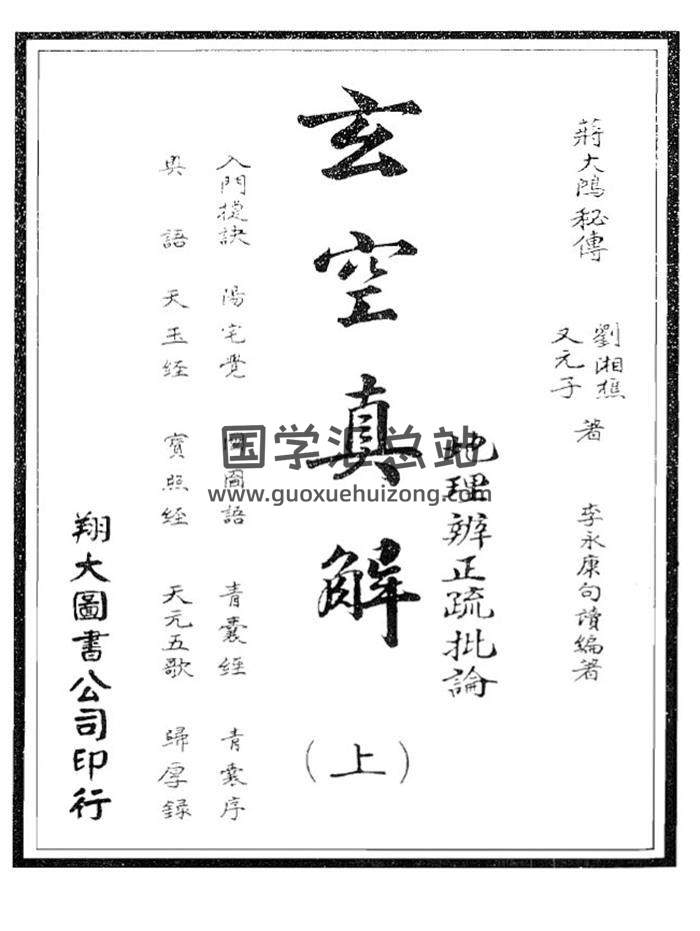 蔣大鴻秘傳
劉湘樵
又元子
著
李永康句讀編著
地理辨正疏批論
玄空真解
(上)
入門捷訣 陽宅覺 圖語 青囊經 青囊序
奥語 天玉經 寶照經 天元五歌 歸厚錄
翔大圖書公司印行
国学汇总站
www.guoxuehuizong.com